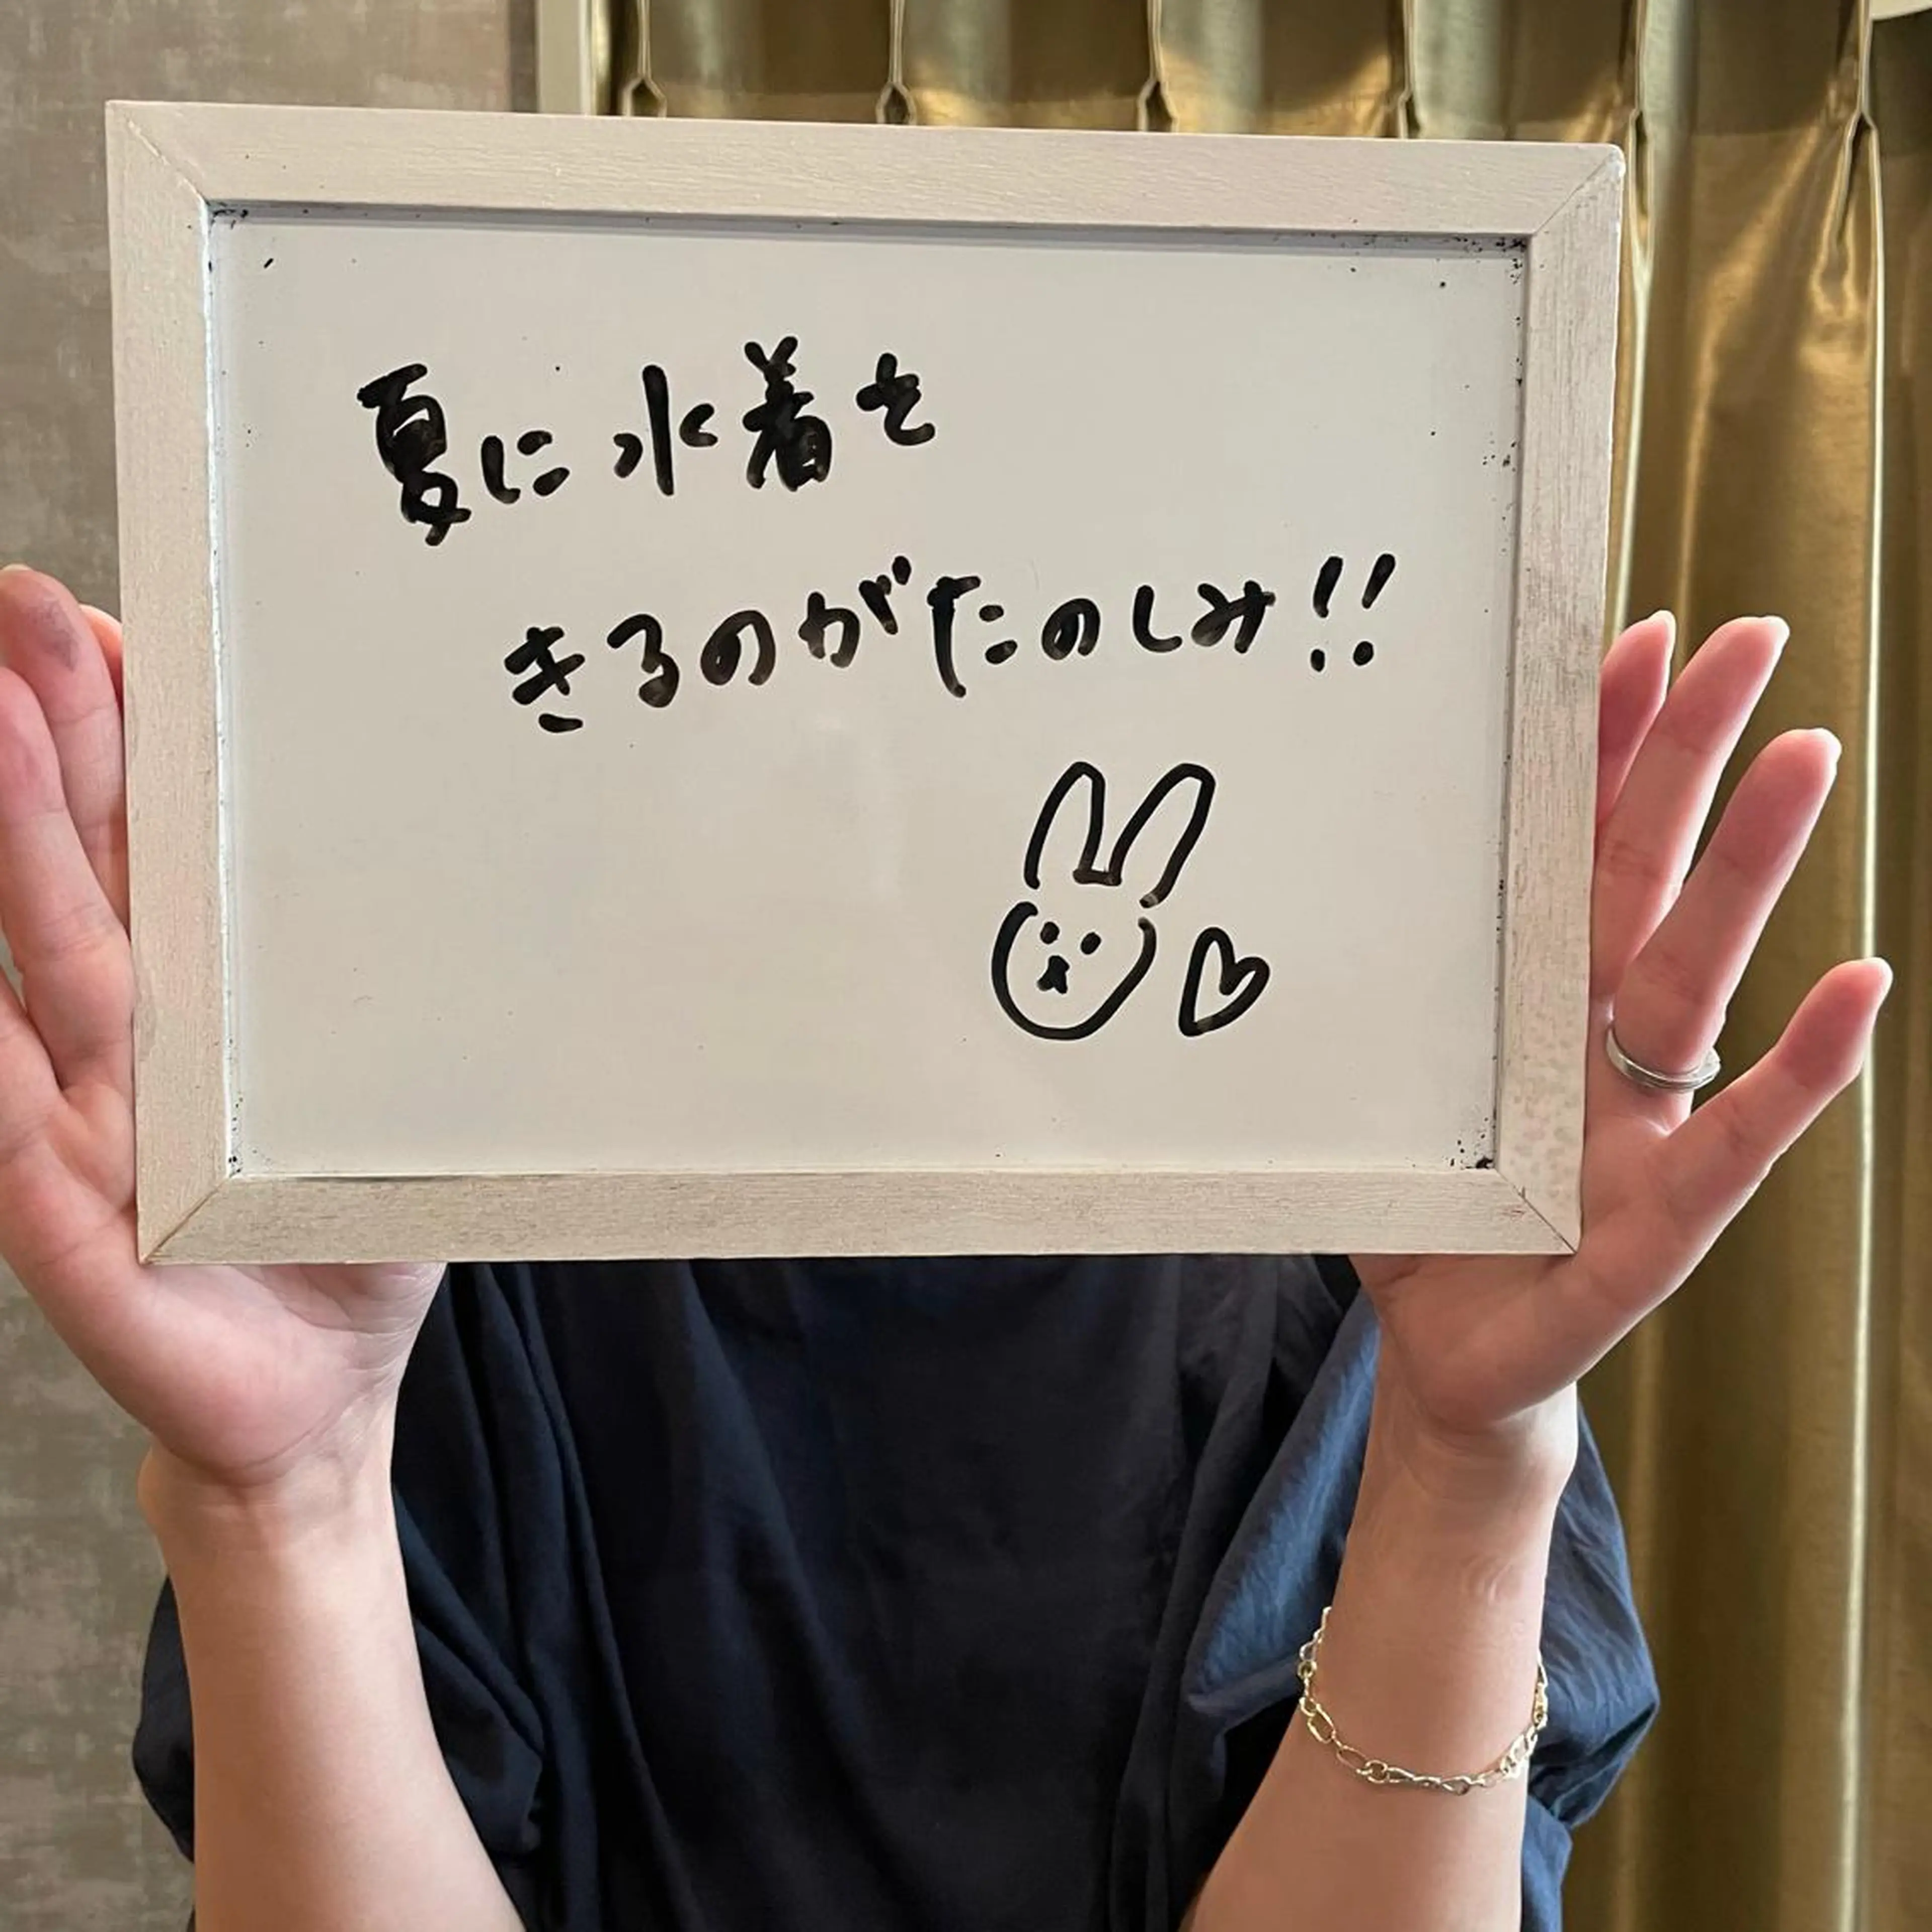 夏に水着を
きるのがたのしみ!!